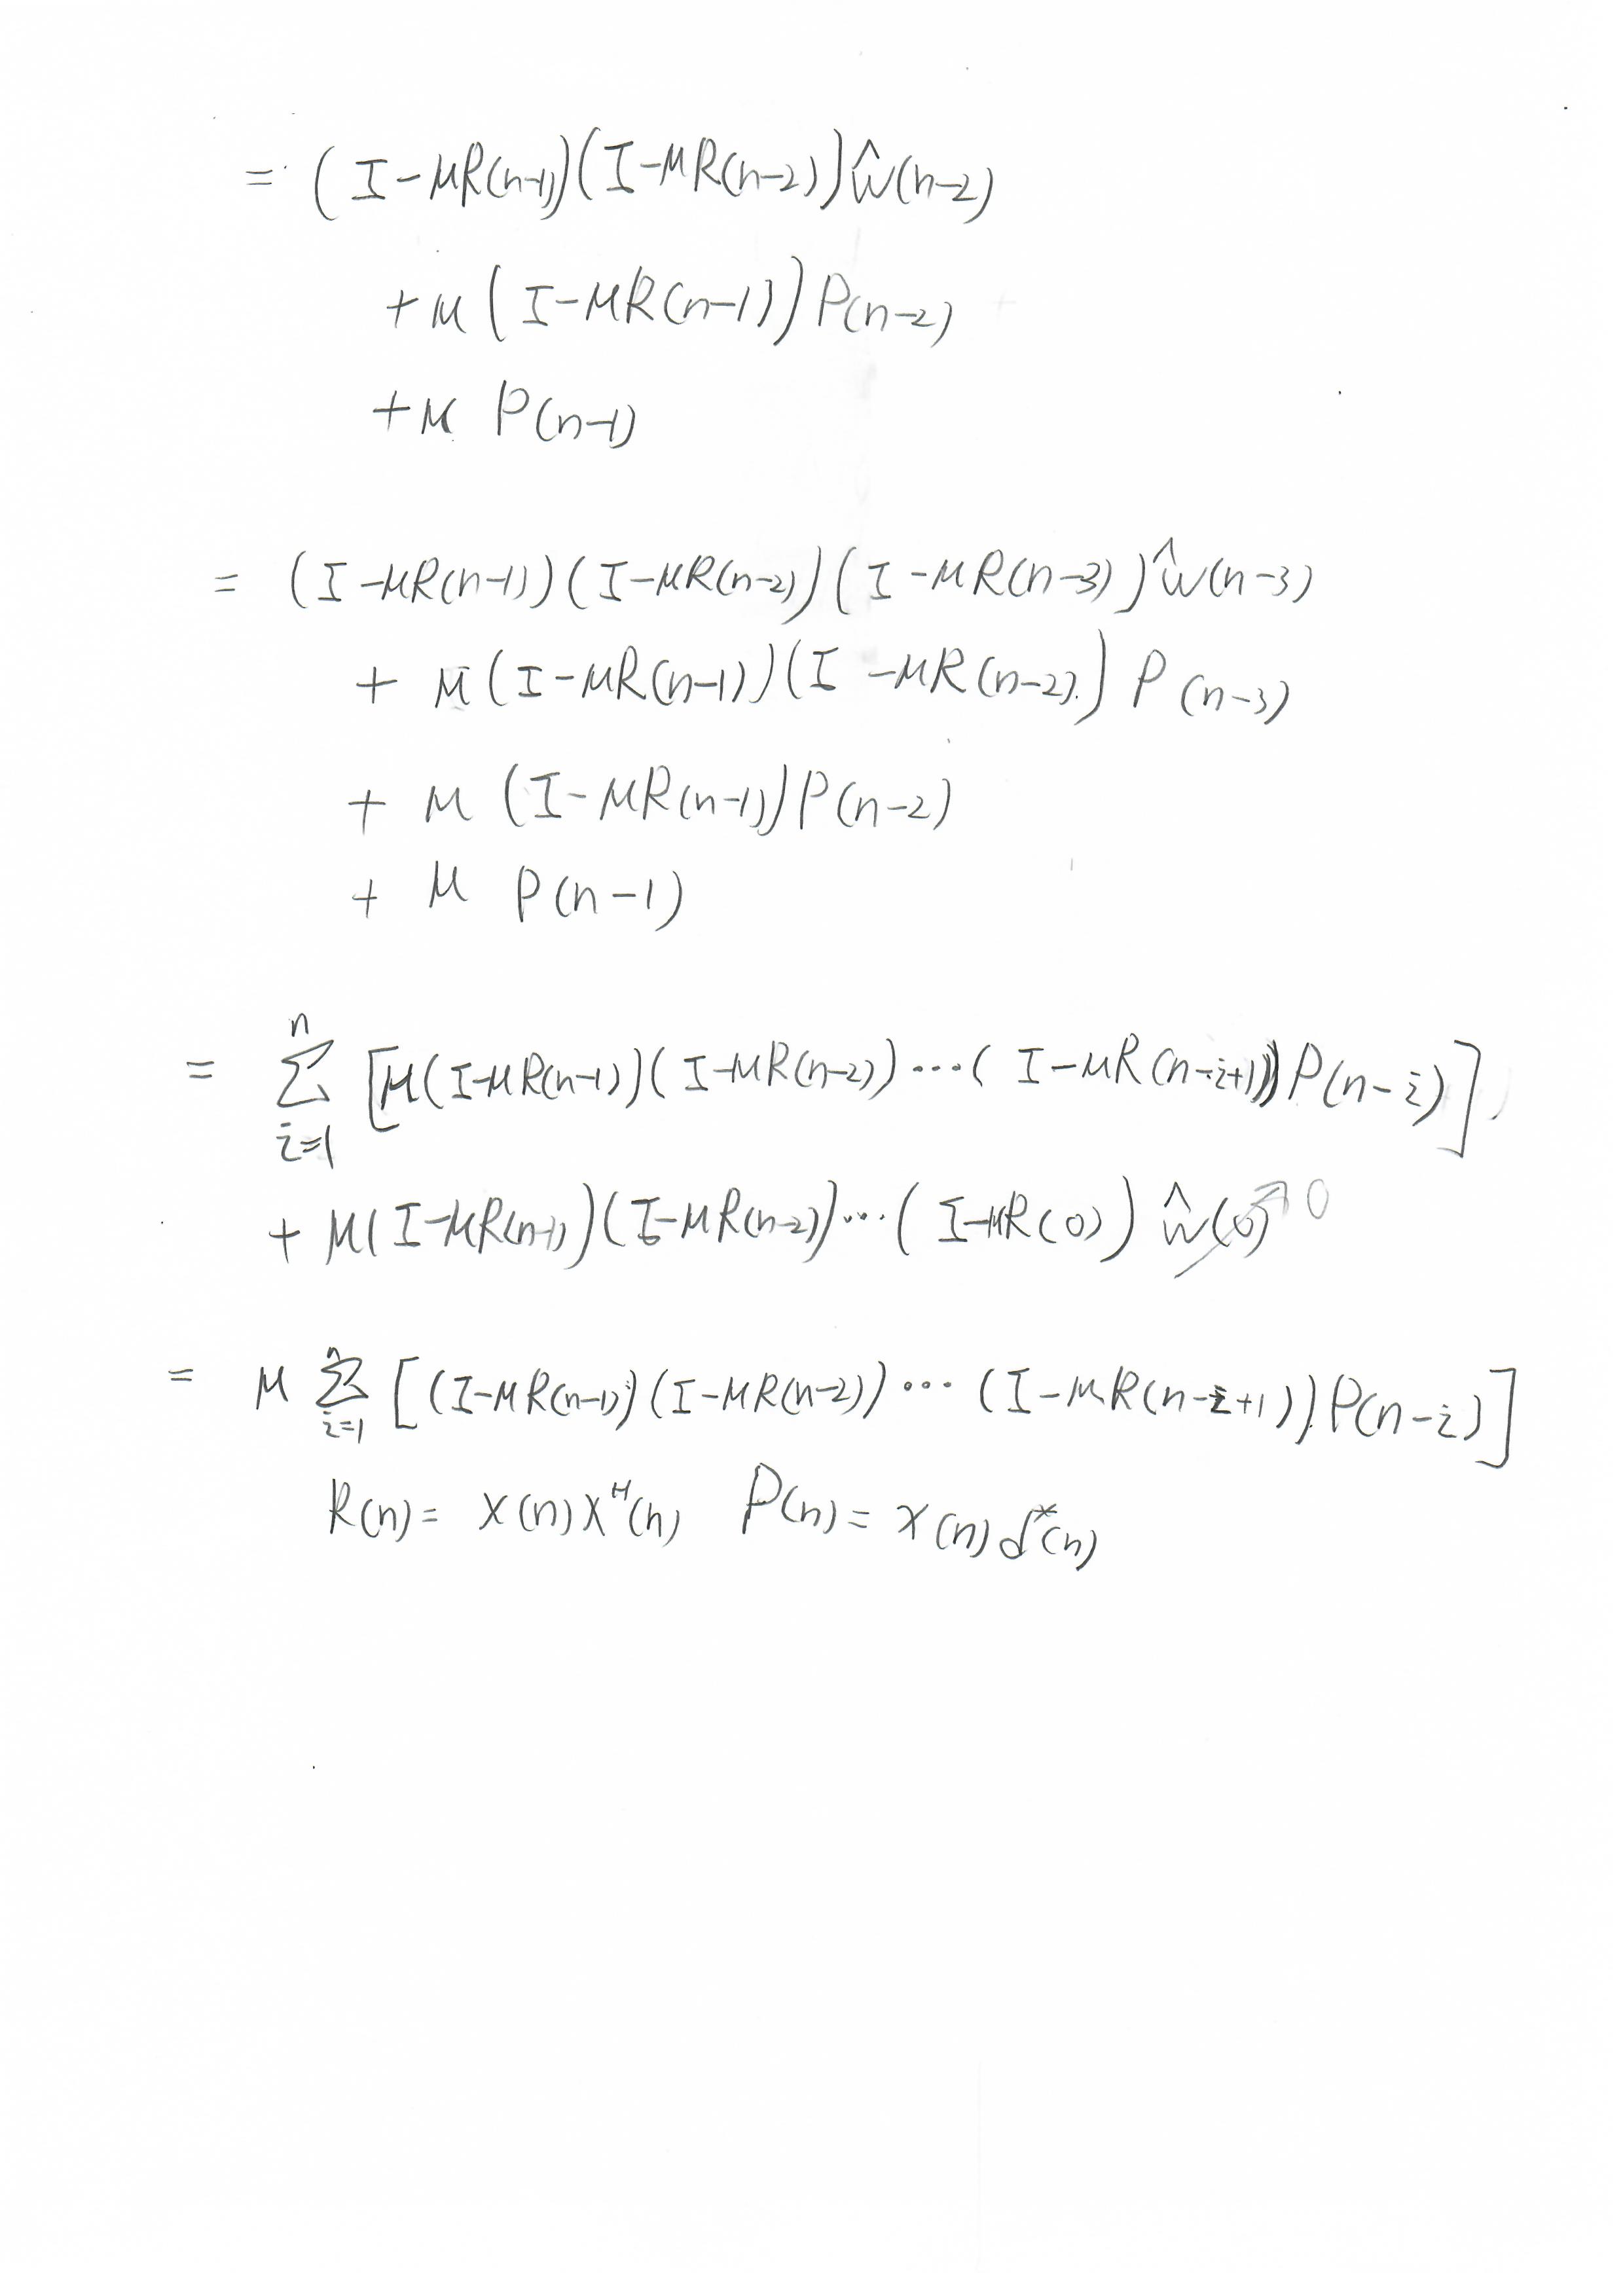 = (I-μR(n-1))(I-μR(n-2))ŵ(n-2)
+μ(I-μR(n-1))P(n-2)
+μ P(n-1)
= (I-μR(n-1))(I-μR(n-2))(I-μR(n-3))ŵ(n-3)
+ μ(I-μR(n-1))(I-μR(n-2))P(n-3)
+ μ(I-μR(n-1))P(n-2)
+ μ P(n-1)
= Σ_{i=1}^{n} [μ(I-μR(n-1))(I-μR(n-2))···(I-μR(n-i+1))P(n-i)]
+ μ(I-μR(n-1))(I-μR(n-2))···(I-μR(0))ŵ(0) → 0
= μ Σ_{i=1}^{n} [(I-μR(n-1))(I-μR(n-2))···(I-μR(n-i+1))P(n-i)]
R(n)= x(n)x^H(n) P(n)= x(n)d*(n)